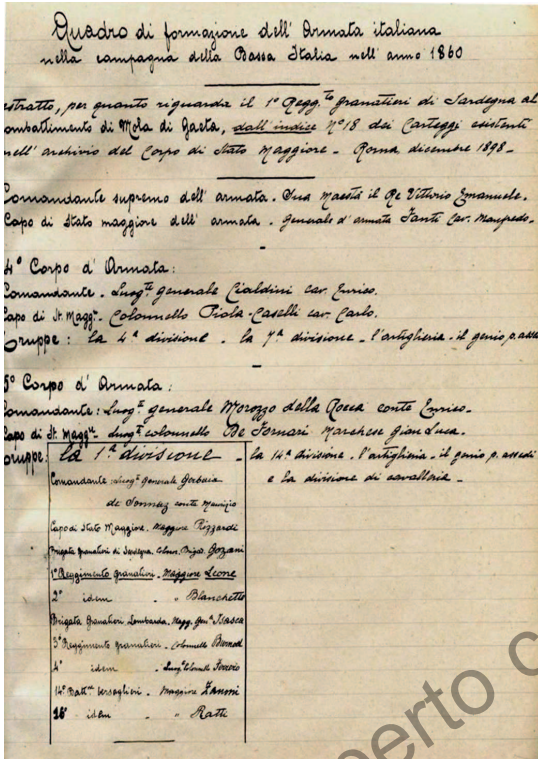 Quadro di formazione dell'Armata italiana
nella campagna della Bassa Italia nell'anno 1860
estratto, per quanto riguarda il 1° Regg.to granatieri di Sardegna al
combattimento di Mola di Gaeta, dall'indice N°18 dei Carteggi esistenti
nell'archivio del Corpo di Stato Maggiore - Roma dicembre 1898 -
Comandante supremo dell'armata. Sua Maestà il Re Vittorio Emanuele.
Capo di Stato maggiore dell'armata. generale d'armata Fanti Cav. Manfredo.
4° Corpo d'Armata:
Comandante. Luog.te generale Cialdini cav. Enrico.
Capo di St. Magg.re Colonnello Piola-Caselli cav. Carlo.
Truppe: la 4ª divisione. la 7ª divisione. l'artiglieria. il genio p. asse
5° Corpo d'Armata:
Comandante: Luog.te generale Morozzo della Rocca conte Enrico.
Capo di St. Magg.re Luog.te colonnello De Fornari Marchese Gian Luca.
Truppe: la 1ª divisione - la 14ª divisione. l'artiglieria. il genio p. assedi
e la divisione di cavalleria.
Comandante Luog.te generale Gerbaix
de Sonnaz conte Maurizio
Capo di Stato Maggiore. Maggiore Rizzardi
Brigata granatieri di Sardegna. Colon. Brigad. Gozzani
1° Reggimento granatieri. Maggiore Leone
2° idem " Blanchetti
Brigata Granatieri Lombardia. Magg. Gen.le Isasca
3° Reggimento granatieri. Colonnello
4° idem . Luog. Colonnello Ferrero
14° Batt.ne bersaglieri. Maggiore Zanoni
16° idem " Ratti
perto c